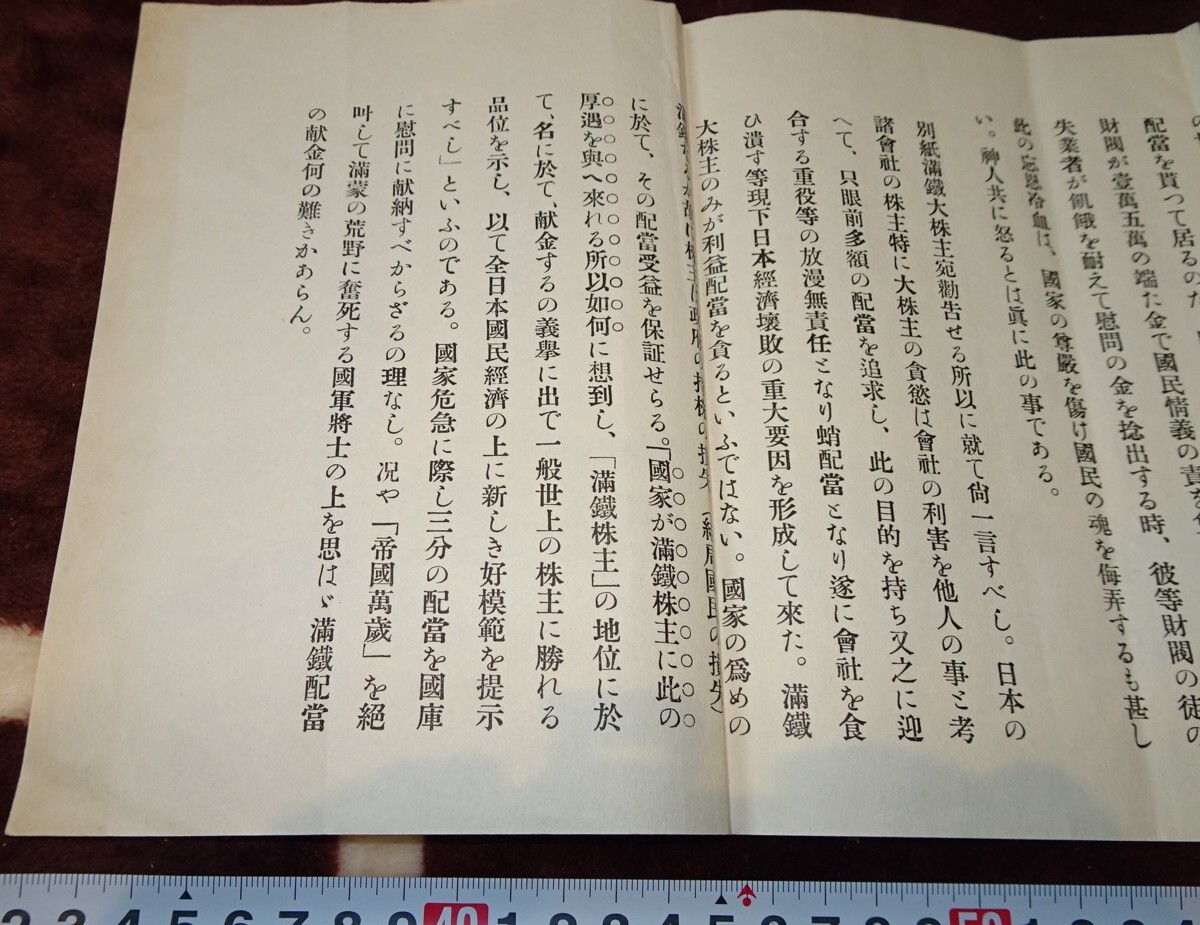 配當を貰つて居るのだ
財閥が壹萬五萬の端た金で國民情義の責を
失業者が飢餓を耐えて慰問の金を捻出する時、彼等財閥の徒の
此の忘恩冷血は、國家の尊嚴を傷け國民の魂を侮弄するも甚し
い。神人共に怒るとは眞に此の事である。
別紙滿鐵大株主宛勸告せる所以に就て尙一言すべし。日本の
諸會社の株主特に大株主の貪慾は會社の利害を他人の事と考
へて、只眼前多額の配當を追求し、此の目的を持ち又之に迎
合する重役等の放漫無責任となり蛸配當となり遂に會社を食
ひ潰す等現下日本經濟壞敗の重大要因を形成して來た。滿鐵
大株主のみが利益配當を貪るといふではない。國家の爲めの
に於て、その配當受益を保証せらる。「國家が滿鐵株主に此の
厚遇を與へ來れる所以如何に想到し、「滿鐵株主」の地位に於
て、名に於て、献金するの義擧に出で一般世上の株主に勝れる
品位を示し、以て全日本國民經濟の上に新しき好模範を提示
すべし」といふのである。國家危急に際し三分の配當を國庫
に慰問に献納すべからざるの理なし。况や「帝國萬歲」を絕
叫して滿蒙の荒野に奮死する國軍將士の上を思はゞ滿鐵配當
の献金何の難きかあらん。
2 3 4 5 6 7 8 9 40 1 2 3 4 5 6 7 8 9 50 1 2 3 4